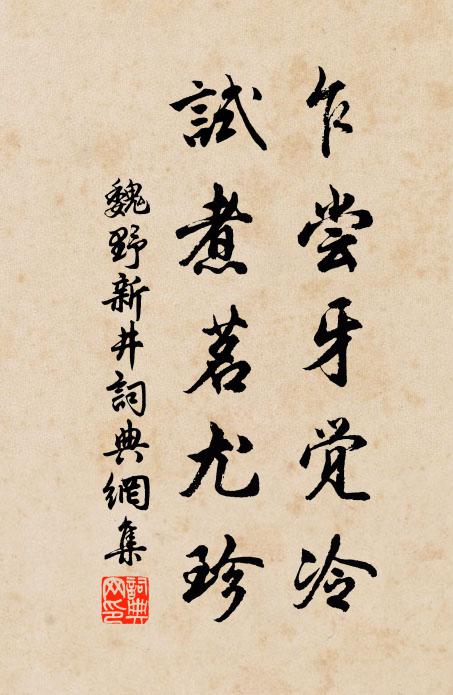 乍尝牙觉冷
試煮茗尤珍
魏野新井詞典網集
詞典網印